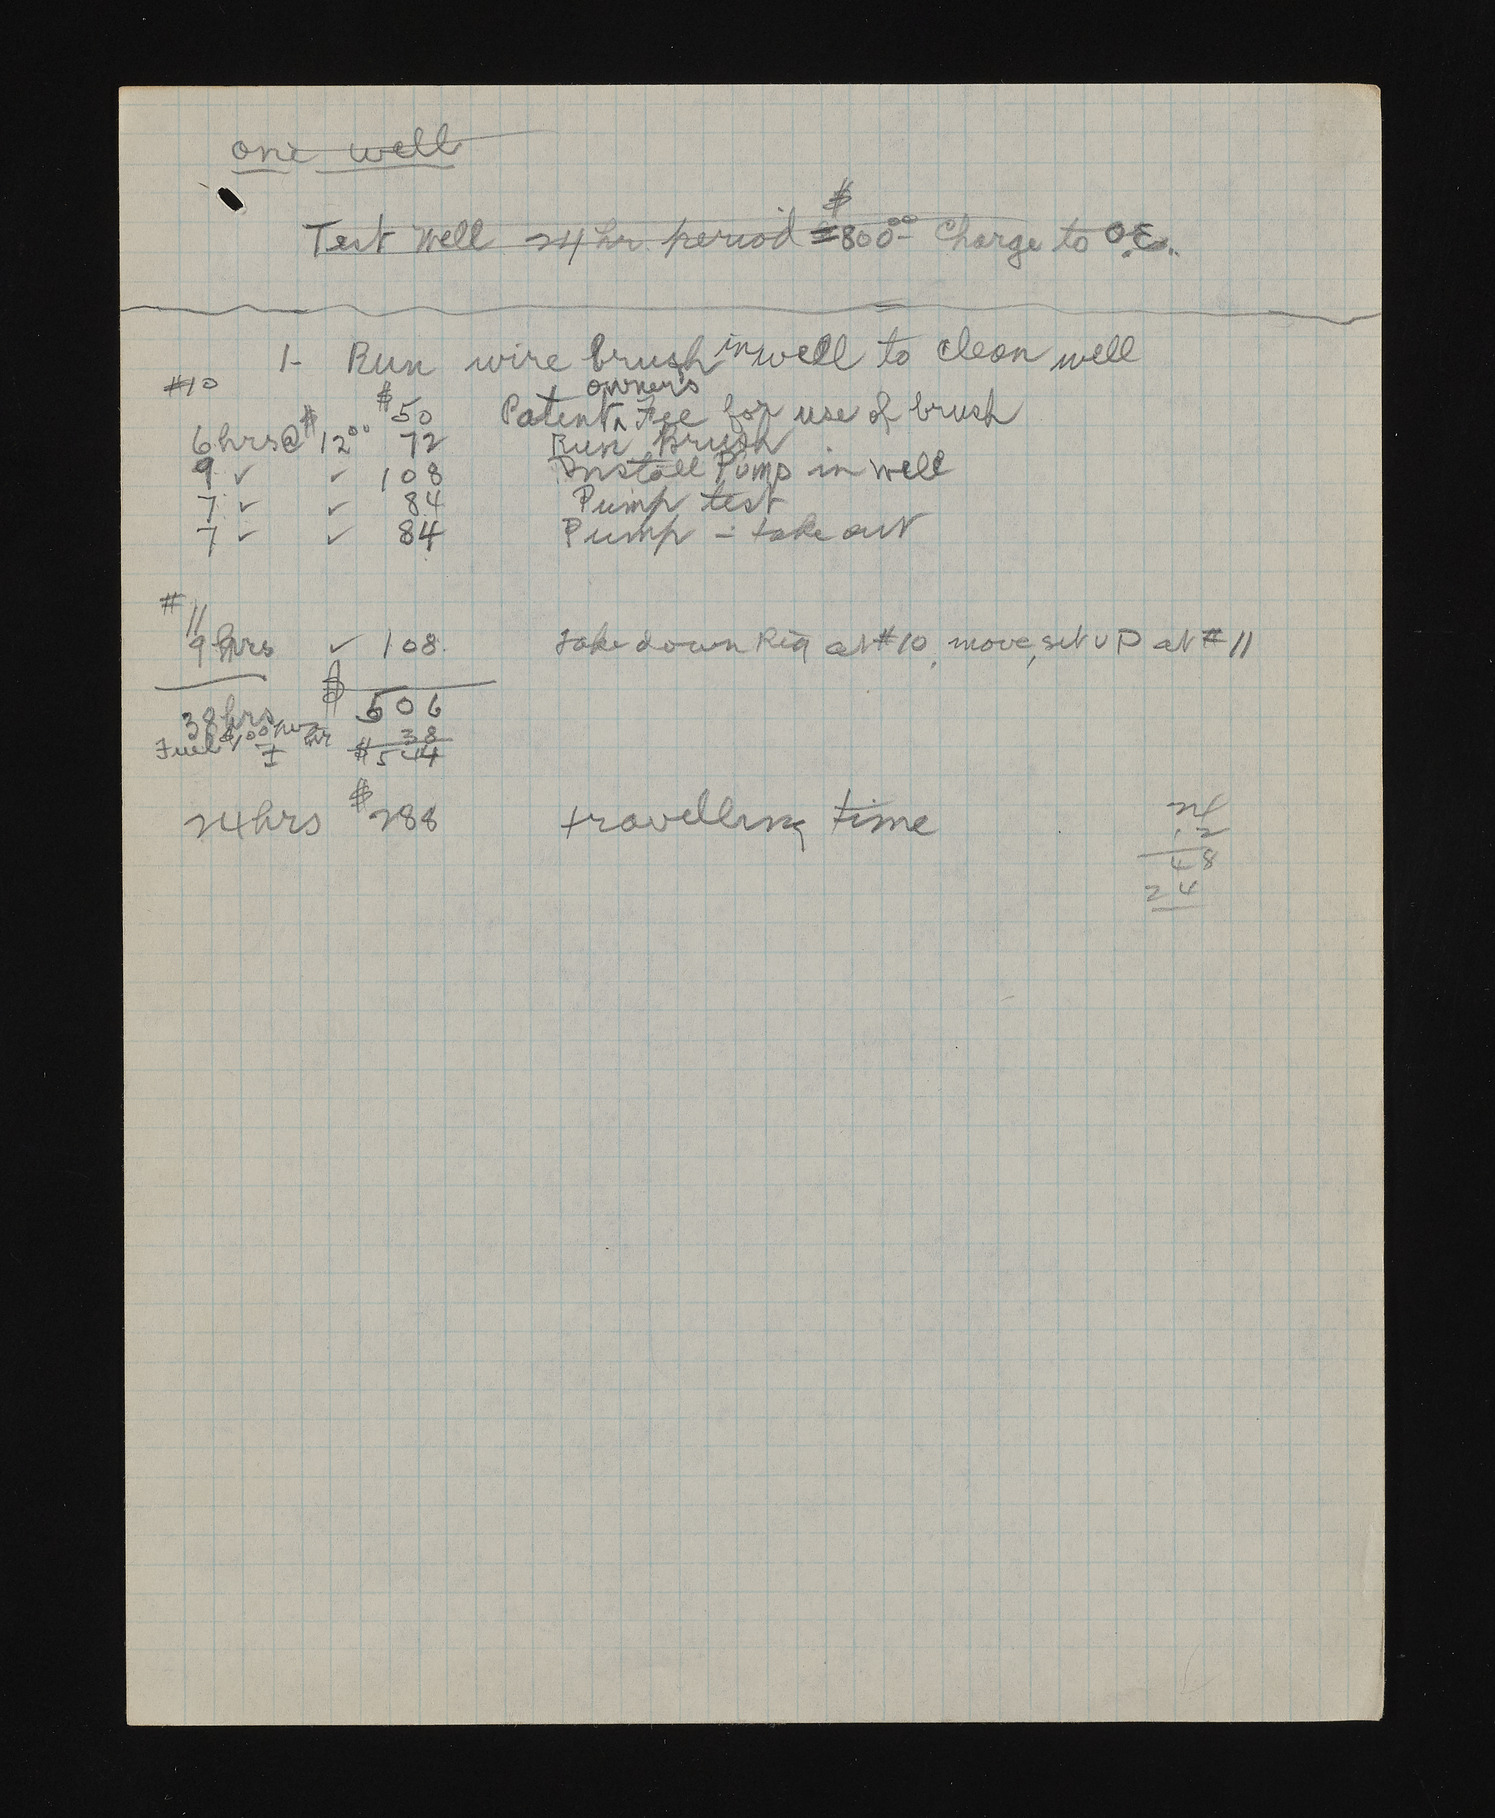 one well
Test Well 24 hr. period = $800.00 Charge to O.E.
1- Run wire brush in well to clean well
#10
$50 Patent owner's Fee for use of brush
6 hrs @ $12.00 72 Run Brush
9 ✓ ✓ 108 Install Pump in well
7 ✓ ✓ 84 Pump test
7 ✓ ✓ 84 Pump - take out
#11
9 hrs ✓ 108. take down Rig at #10, move, set up at #11
38 hrs $506
Fuel $1.00 per hr 38
$544
24 hrs $288 travelling time
24
12
48
24